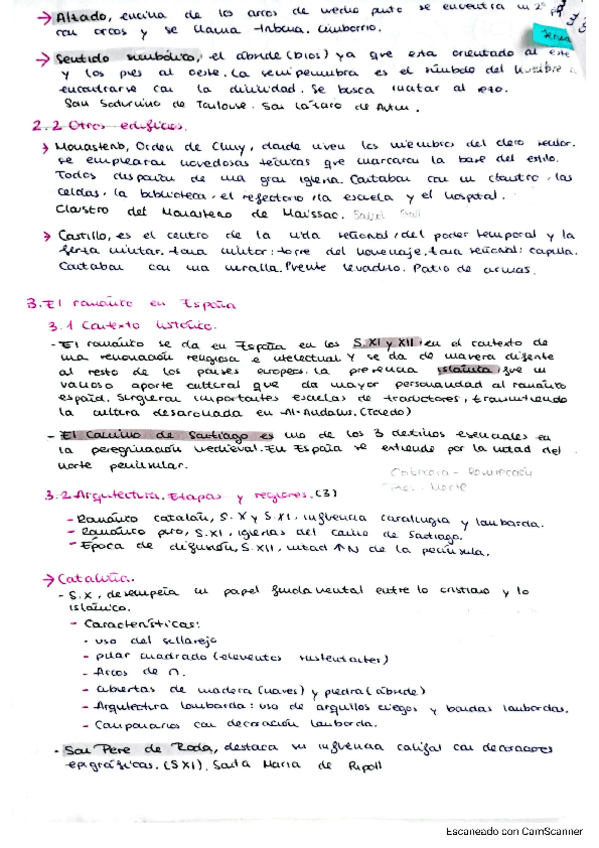 → Alzado, encima de los arcos de medio punto se encuentra un 2º
con arcos y se llama tribuna. Cimborrio.
→ Sentido simbólico, el ábside (Dios) ya que está orientado al este
y los pies al oeste. La semipenumbra es el símbolo del hombre a
encontrarse con la divinidad. Se busca imitar al
San Saturnino de Toulouse. San Lázaro de Autun.
2.2 Otros edificios.
→ Monasterio, Orden de Cluny, donde viven los miembros del clero regular.
se emplearon novedosas técnicas que marcaron la base del estilo.
Todos disponían de una gran iglesia. Contaban con un claustro, las
celdas, la biblioteca, el refectorio, la escuela y el hospital.
Claustro del Monasterio de Moissac.
→ Castillo, es el centro de la vida señorial, del poder temporal y la
fuerza militar. Zona militar: torre del homenaje, zona señorial: capilla.
Contaban con una muralla. Puente levadizo. Patio de armas.
3. El románico en España
3.1 Contexto histórico.
- El románico se da en España en los S. XI y XII, en el contexto de
una renovación religiosa e intelectual y se da de manera diferente
al resto de los países europeos. La presencia islámica, fue un
valioso aporte cultural que da mayor personalidad al románico
español. Surgieron importantes escuelas de traductores, transmitiendo
la cultura desarrollada en Al-Andalus. (Toledo)
- El Camino de Santiago es uno de los 3 destinos esenciales en
la peregrinación medieval. En España se extiende por la mitad del
norte peninsular.
3.2 Arquitectura. Etapas y regiones. (3)
- Románico catalán, S. X y S. XI, influencia carolingia y lombarda.
- Románico puro, S. XI, iglesias del camino de Santiago.
- Época de difusión, S. XII, mitad ↑N de la península.
→ Cataluña.
- S. X, desempeña un papel fundamental entre lo cristiano y lo
islámico.
- Características:
- uso del sillarejo
- pilar cuadrado (elementos sustentantes)
- Arcos de ∩.
- cubiertas de madera (naves) y piedra (ábside)
- Arquitectura lombarda: uso de arquillos ciegos y bandas lombardas.
- Campanarios con decoración lombarda.
- San Pere de Roda, destaca su influencia califal con decoraciones
epigráficas. (S XI). Santa María de Ripoll
Escaneado con CamScanner